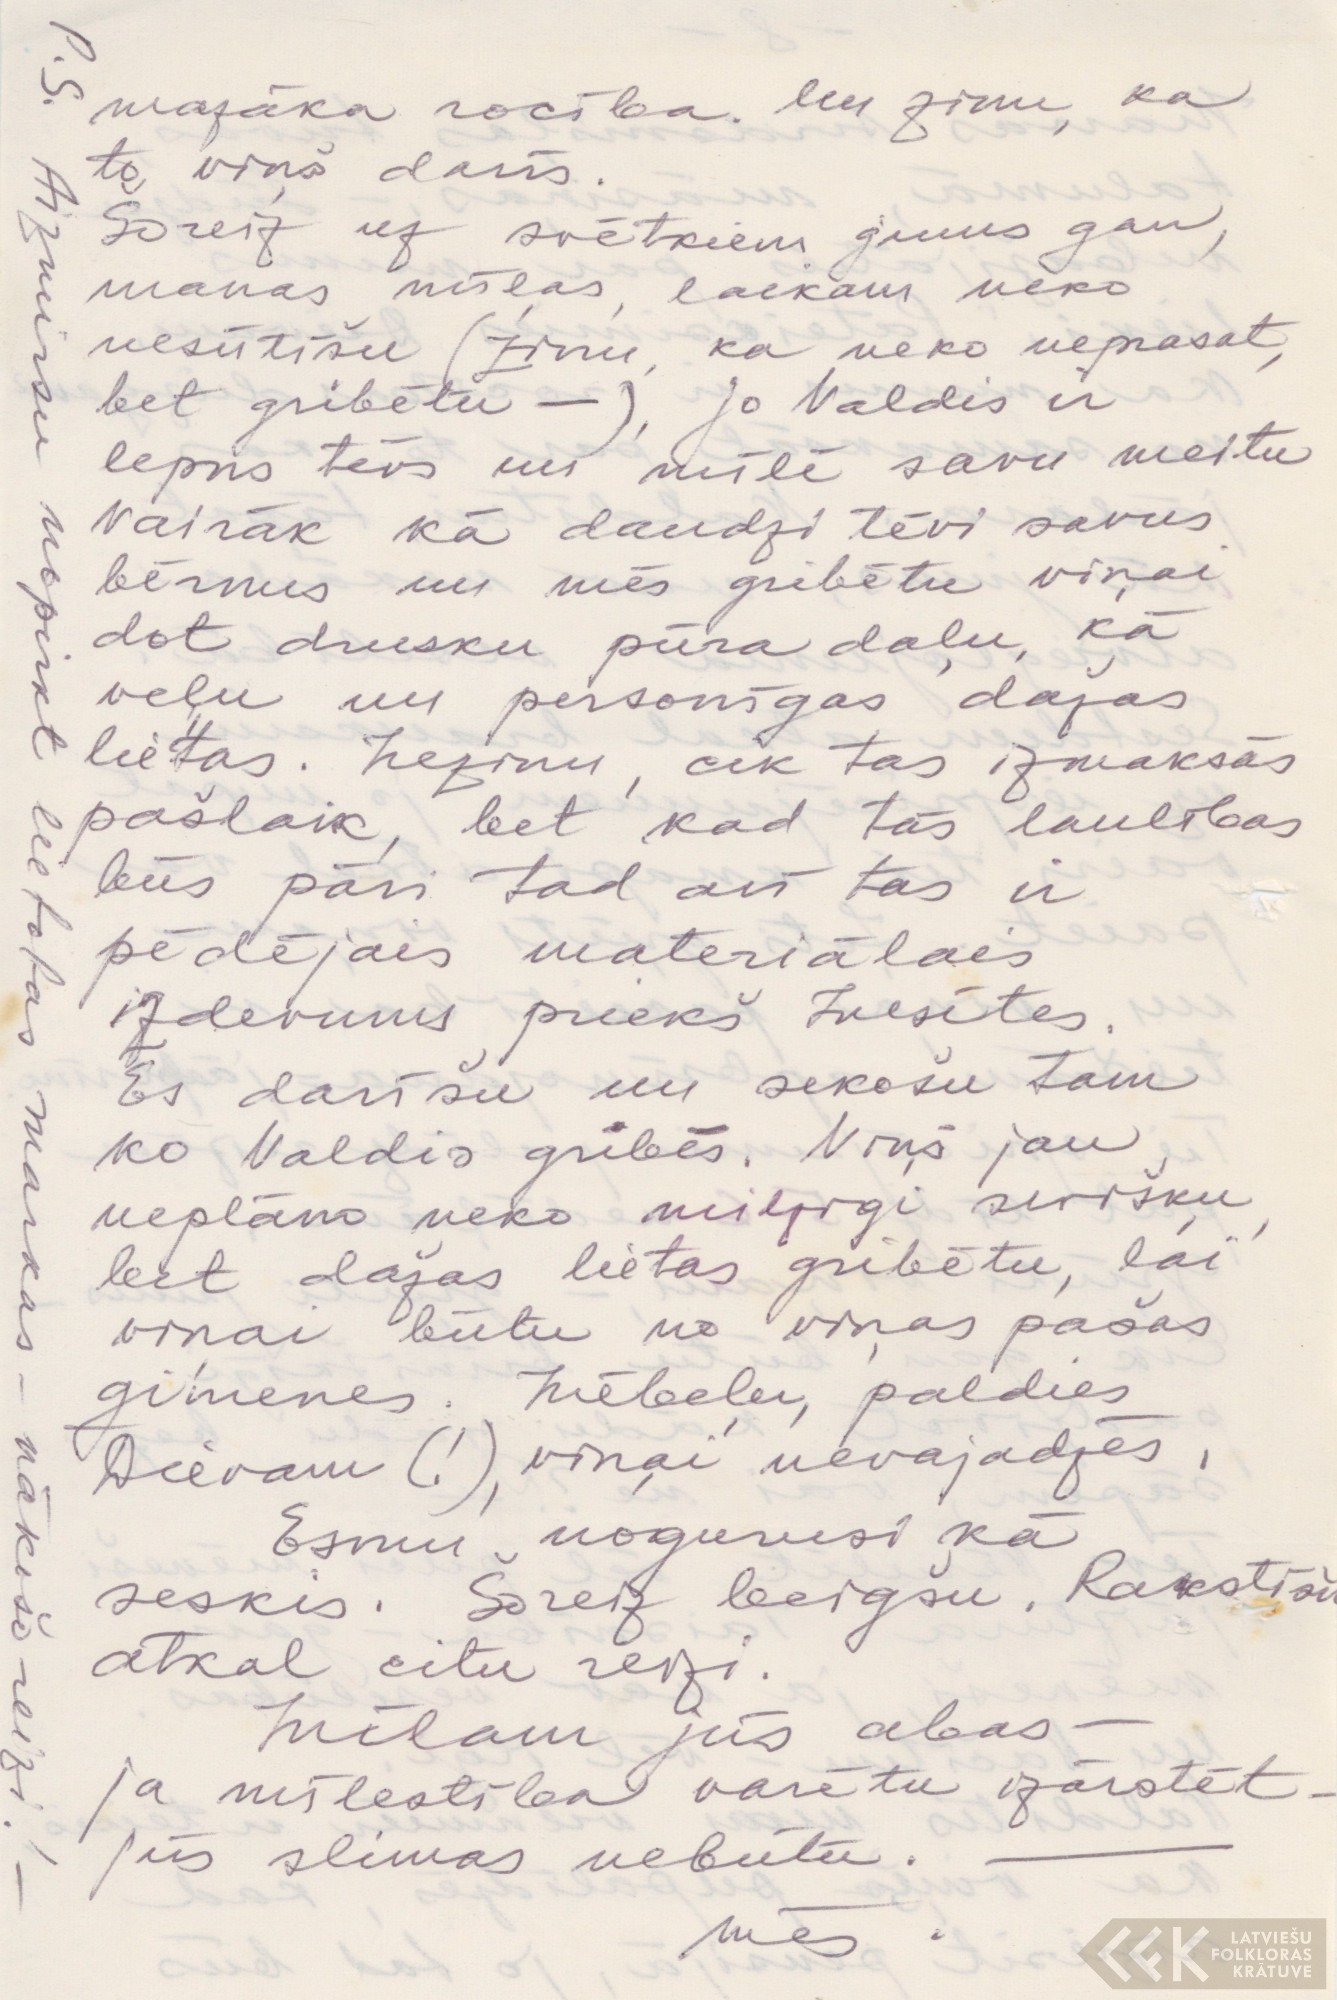 mazāka rocība. Un zinu, ka
to viņš darīs.
Šoreiz uz svētkiem jums gan,
manas mīļas, laikam neko
nesūtīšu (zinu, ka neko neprasat,
bet gribētu —), jo Valdis ir
lepns tēvs un mīlē savu meitu
vairāk kā daudzi tēvi savus
bērnus un mēs gribētu viņai
dot drusku pūra daļu, kā
veļu un personīgas dažas
lietas. Nezinu, cik tas izmaksās
pašlaik, bet kad tās laulības
būs pāri tad arī tas ir
pēdējais materiālais
izdevums priekš Inesītes.
Es darīšu un sekošu tam
ko Valdis gribēs. Viņš jau
neplāno neko milzīgi sevišķu,
bet dažas lietas gribētu, lai
viņai būtu no viņas pašas
ģimenes. Mēbeļu, paldies
Dievam (!), viņai nevajadzēs.
Esmu nogurusi kā
seskis. Šoreiz beigšu. Rakstīšu
atkal citu reizi.
Mīlam jūs abas —
ja mīlestība varētu izārstēt –
jūs slimas nebūtu. —
mēs.
P.S. Aizmirsu nopirkt lietotas markas – nākošo reizi! –
LATVIEŠU
FOLKLORAS
KRĀTUVE